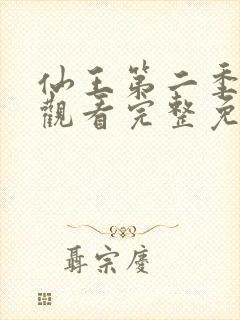 仙王第二季
觀看完整免
聶宗慶